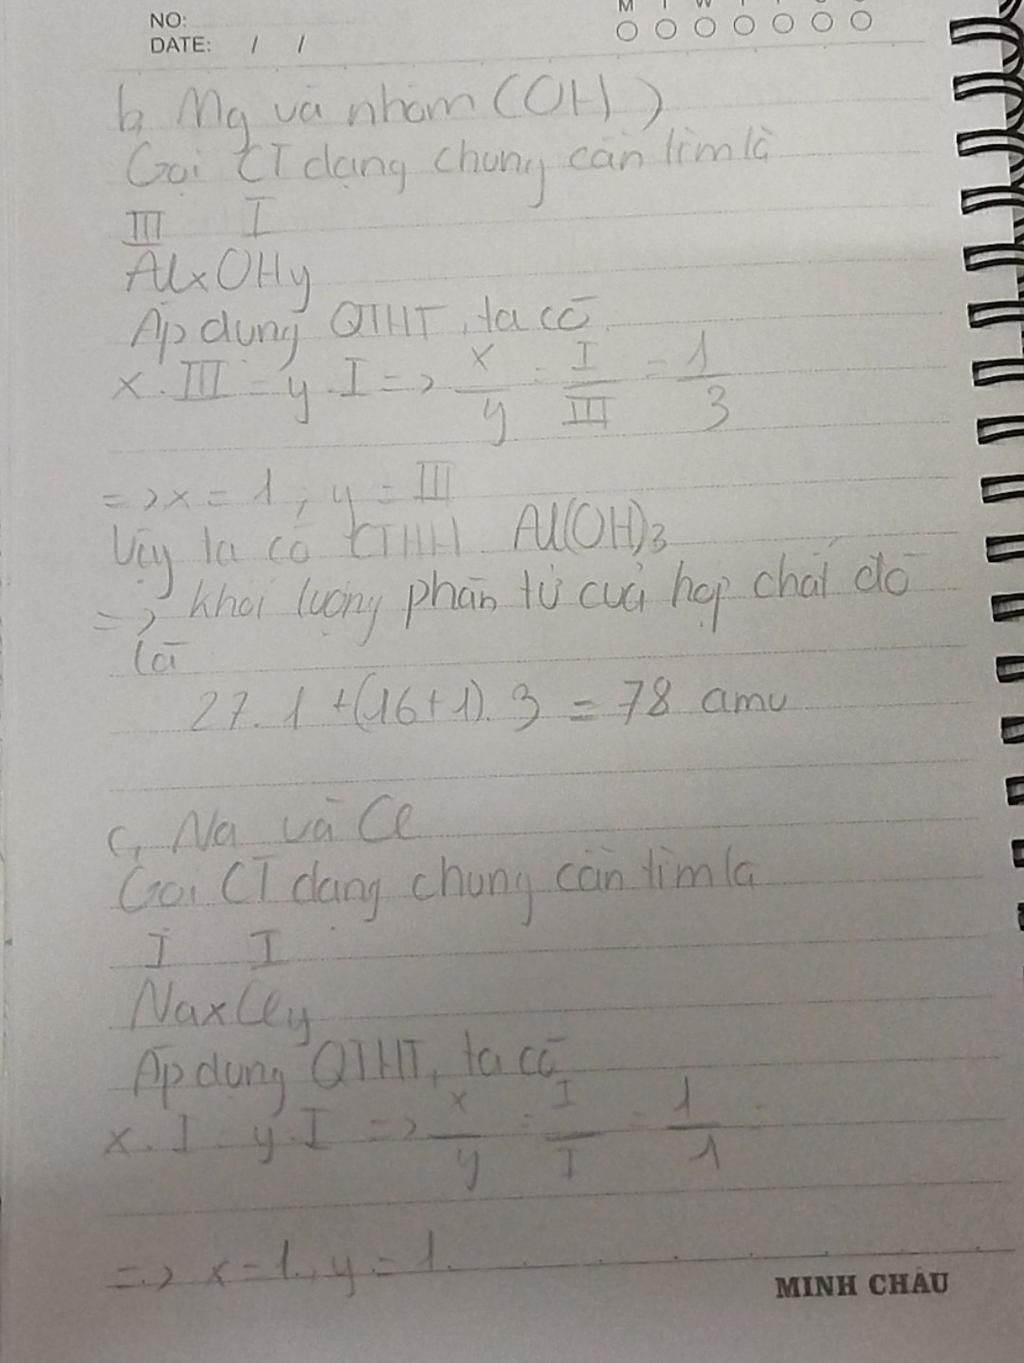 NO:
DATE: / /
M T W T F S S
b, Mg và nhóm (OH)
Gọi CT dạng chung cần tìm là
III I
AlxOHy
Áp dụng QTHT, ta có
x . III = y . I => x/y = I/III = 1/3
=> x = 1 , y = III
Vậy ta có CTHH Al(OH)3
=> khối lượng phân tử của hợp chất đó
là
27. 1 + (16+1). 3 = 78 amu
c, Na và Cl
Gọi CT dạng chung cần tìm là
I I
NaxCly
Áp dụng QTHT, ta có
x . I = y . I => x/y = I/I = 1/1
=> x = 1 , y = 1
MINH CHÂU